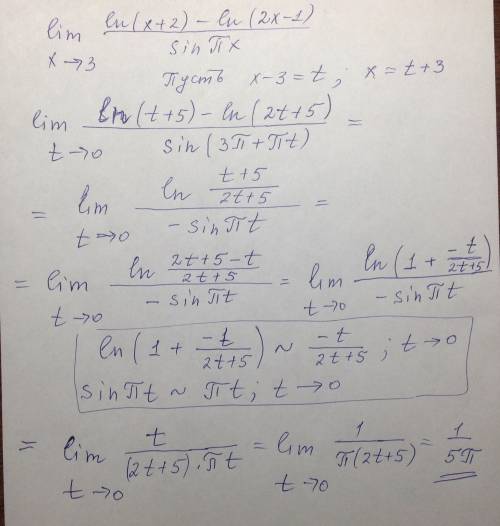 lim x→3 (ln(x+2) − ln(2x−1)) / (sin πx)
Пусть x−3 = t ; x = t+3
lim t→0 (ln(t+5) − ln(2t+5)) / (sin(3π+πt)) =
= lim t→0 (ln (t+5)/(2t+5)) / (−sin πt) =
= lim t→0 (ln (2t+5−t)/(2t+5)) / (−sin πt) = lim t→0 (ln(1 + (−t)/(2t+5))) / (−sin πt)
ln(1 + (−t)/(2t+5)) ~ (−t)/(2t+5) ; t→0
sin πt ~ πt ; t→0
= lim t→0 t / ((2t+5)·πt) = lim t→0 1 / (π(2t+5)) = 1/(5π)